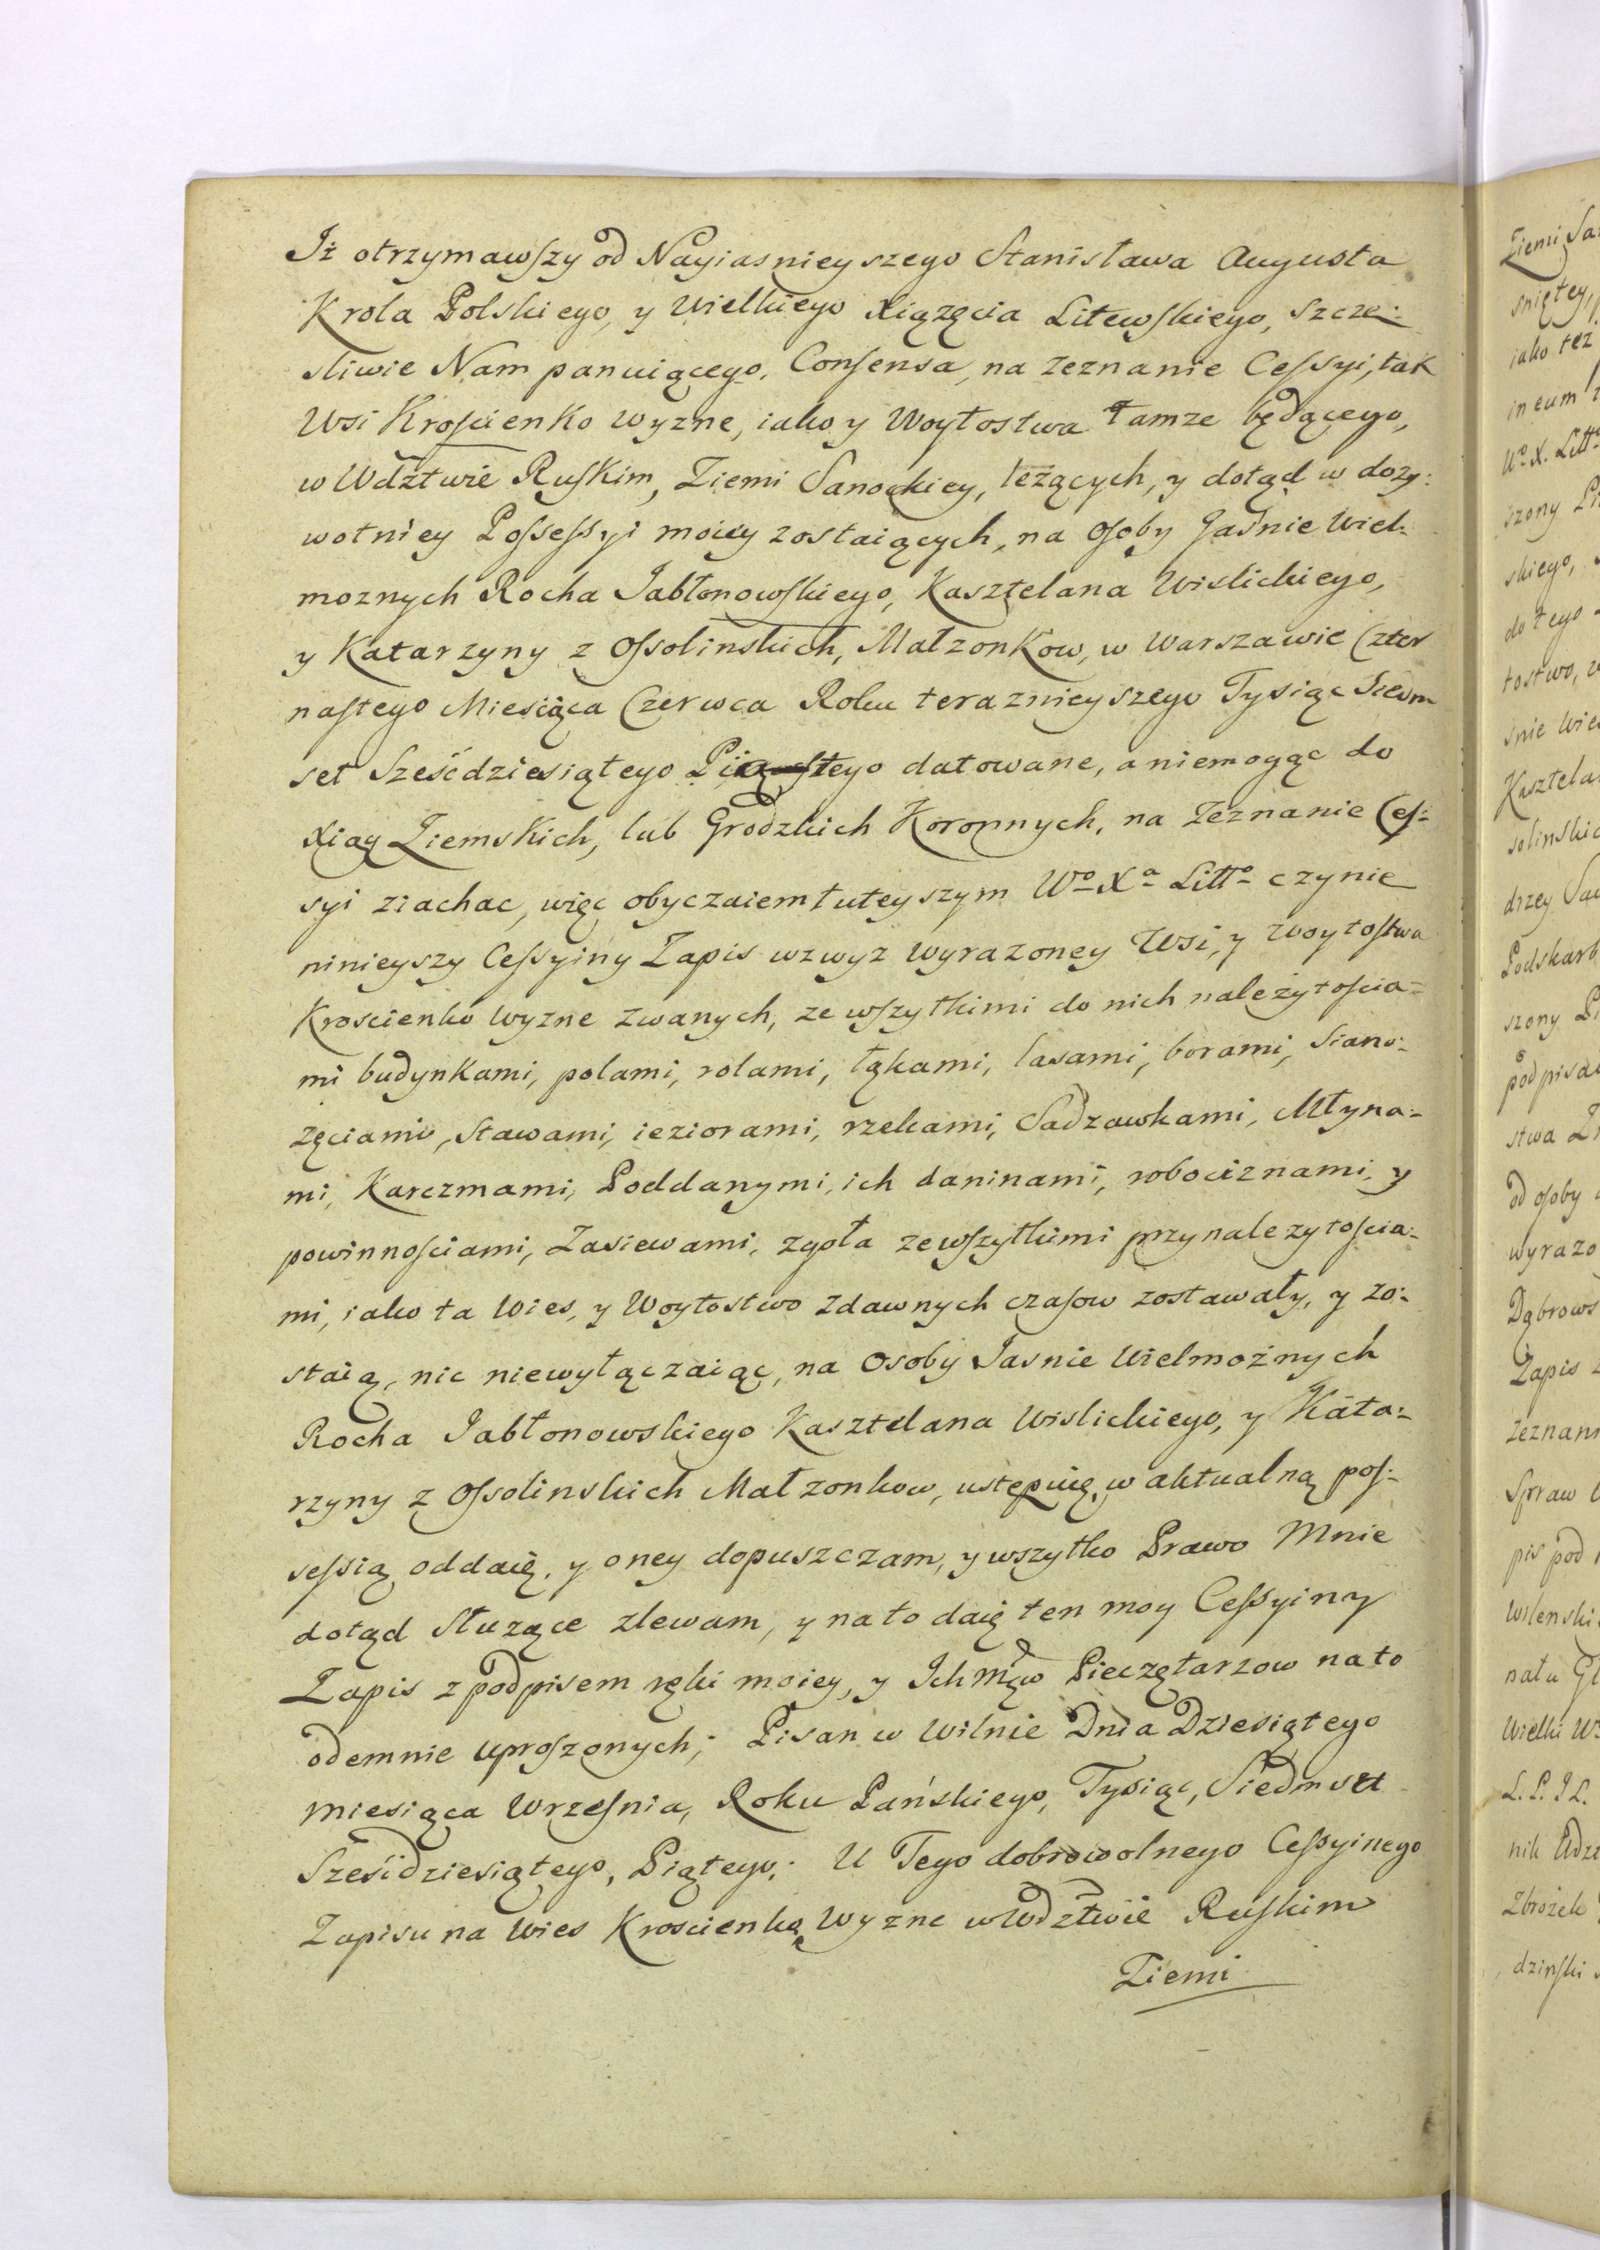 Iż otrzymawszy od Nayiasnieyszego Stanisława Augusta
Krola Polskiego, y Wielkiego Xiązęcia Litewskiego, szczę:
sliwie Nam panuiącego, Consensa, na zeznanie Cessyi, tak
Wsi Kroscienko wyzne, iako y Woytostwa tamze będącego,
w Wdztwie Ruskim, Ziemi Sanockiey, leżących, y dotąd w dozy:
wotniey Possessyi moiey zostaiących, na osoby Jaśnie Wiel:
moznych Rocha Jabłonowskiego, Kasztelana Wislickiego,
y Katarzyny z Ossolinskich, Małzonkow, w Warszawie Czter
nastego Miesiąca Czerwca Roku teraznieyszego Tysiąc Siedm
set Sześćdziesiątego Piątego datowane, a niemogąc do
Xiąg Ziemskich, lub Grodzkich Koronnych, na Zeznanie Ces:
syi ziachac, więc obyczaiem tuteyszym Wo Xa Litto czynie
ninieyszy Cessyiny Zapis wzwyz wyrazoney Wsi, y Woytostwa
Kroscienko wyzne zwanych, ze wszytkimi do nich należytoscia:
mi budynkami, polami, rolami, łąkami, lasami, borami, Siano:
zęciami, Stawami, ieziorami, rzekami, Sadzawkami, Młyna:
mi, Karczmami, Poddanymi, ich daninami, robociznami, y
powinnościami, Zasiewami, zgoła ze wszytkimi przynalezytoscia:
mi, iako ta Wies, y Woytostwo zdawnych czasow zostawały, y zo:
staią, nic niewyłączaiąc, na Osoby Jasnie Wielmożnych
Rocha Jabłonowskiego Kasztelana Wislickiego, y Kata:
rzyny z Ossolinskich Małzonkow, ustępuię, w aktualną pos:
sessią oddaię, y oney dopuszczam, y wszytko Prawo Mnie
dotąd Słuzące zlewam, y na to daię ten moy Cessyiny
Zapis z podpisem ręki moiey, y Ichmw Pieczętarzow na to
odemnie uproszonych; Pisan w Wilnie Dnia Dziesiątego
miesiąca Wrzesnia, Roku Pańskiego, Tysiąc, Siedmset
Sześćdziesiątego, Piątego; U Tego dobrowolnego Cessyinego
Zapisu na Wies Kroscienko, Wyzne w Wdztwie Ruskim
Ziemi